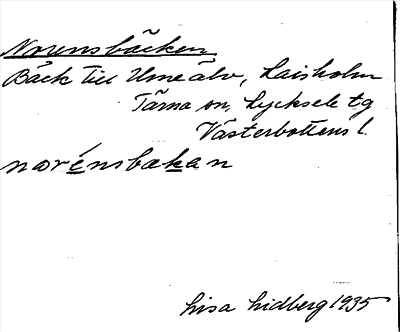 Norensbäcken
Bäck till Ume älv, Laisholm
Tärna sn, Lycksele tg
Västerbottens l.
norénsbakan
Lisa Lidberg 1935